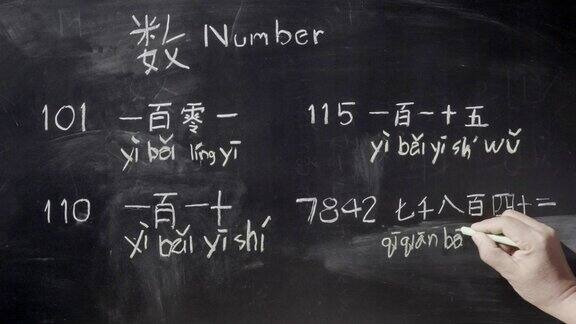 数 Number
101 一百零一
yì bǎi líng yī
115 一百一十五
yì bǎi yī shí wǔ
110 一百一十
yì bǎi yī shí
7842 七千八百四十二
qī qiān bā